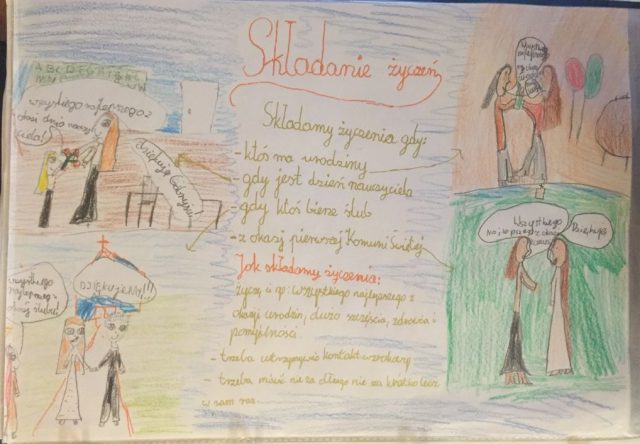 Składanie życzeń
Składamy życzenia gdy:
- ktoś ma urodziny
- gdy jest dzień nauczyciela
- gdy ktoś bierze ślub
- z okazji pierwszej Komuni świętej
Jak składamy życzenia:
życzę ci np: wszystkiego najlepszego z
okazji urodzin, dużo szczęścia, zdrowia i
pomyślności.
- trzeba utrzymywać kontakt wzrokowy
- trzeba mówić nie za długo nie za krótko lecz
w sam raz.
wszystkiego najlepszego z
okazji dnia
dziękuję
wszystkiego
najlepszego z
okazji ślubu!
DZIĘKUJEMY!!!
Wszystkiego
Dziękuję